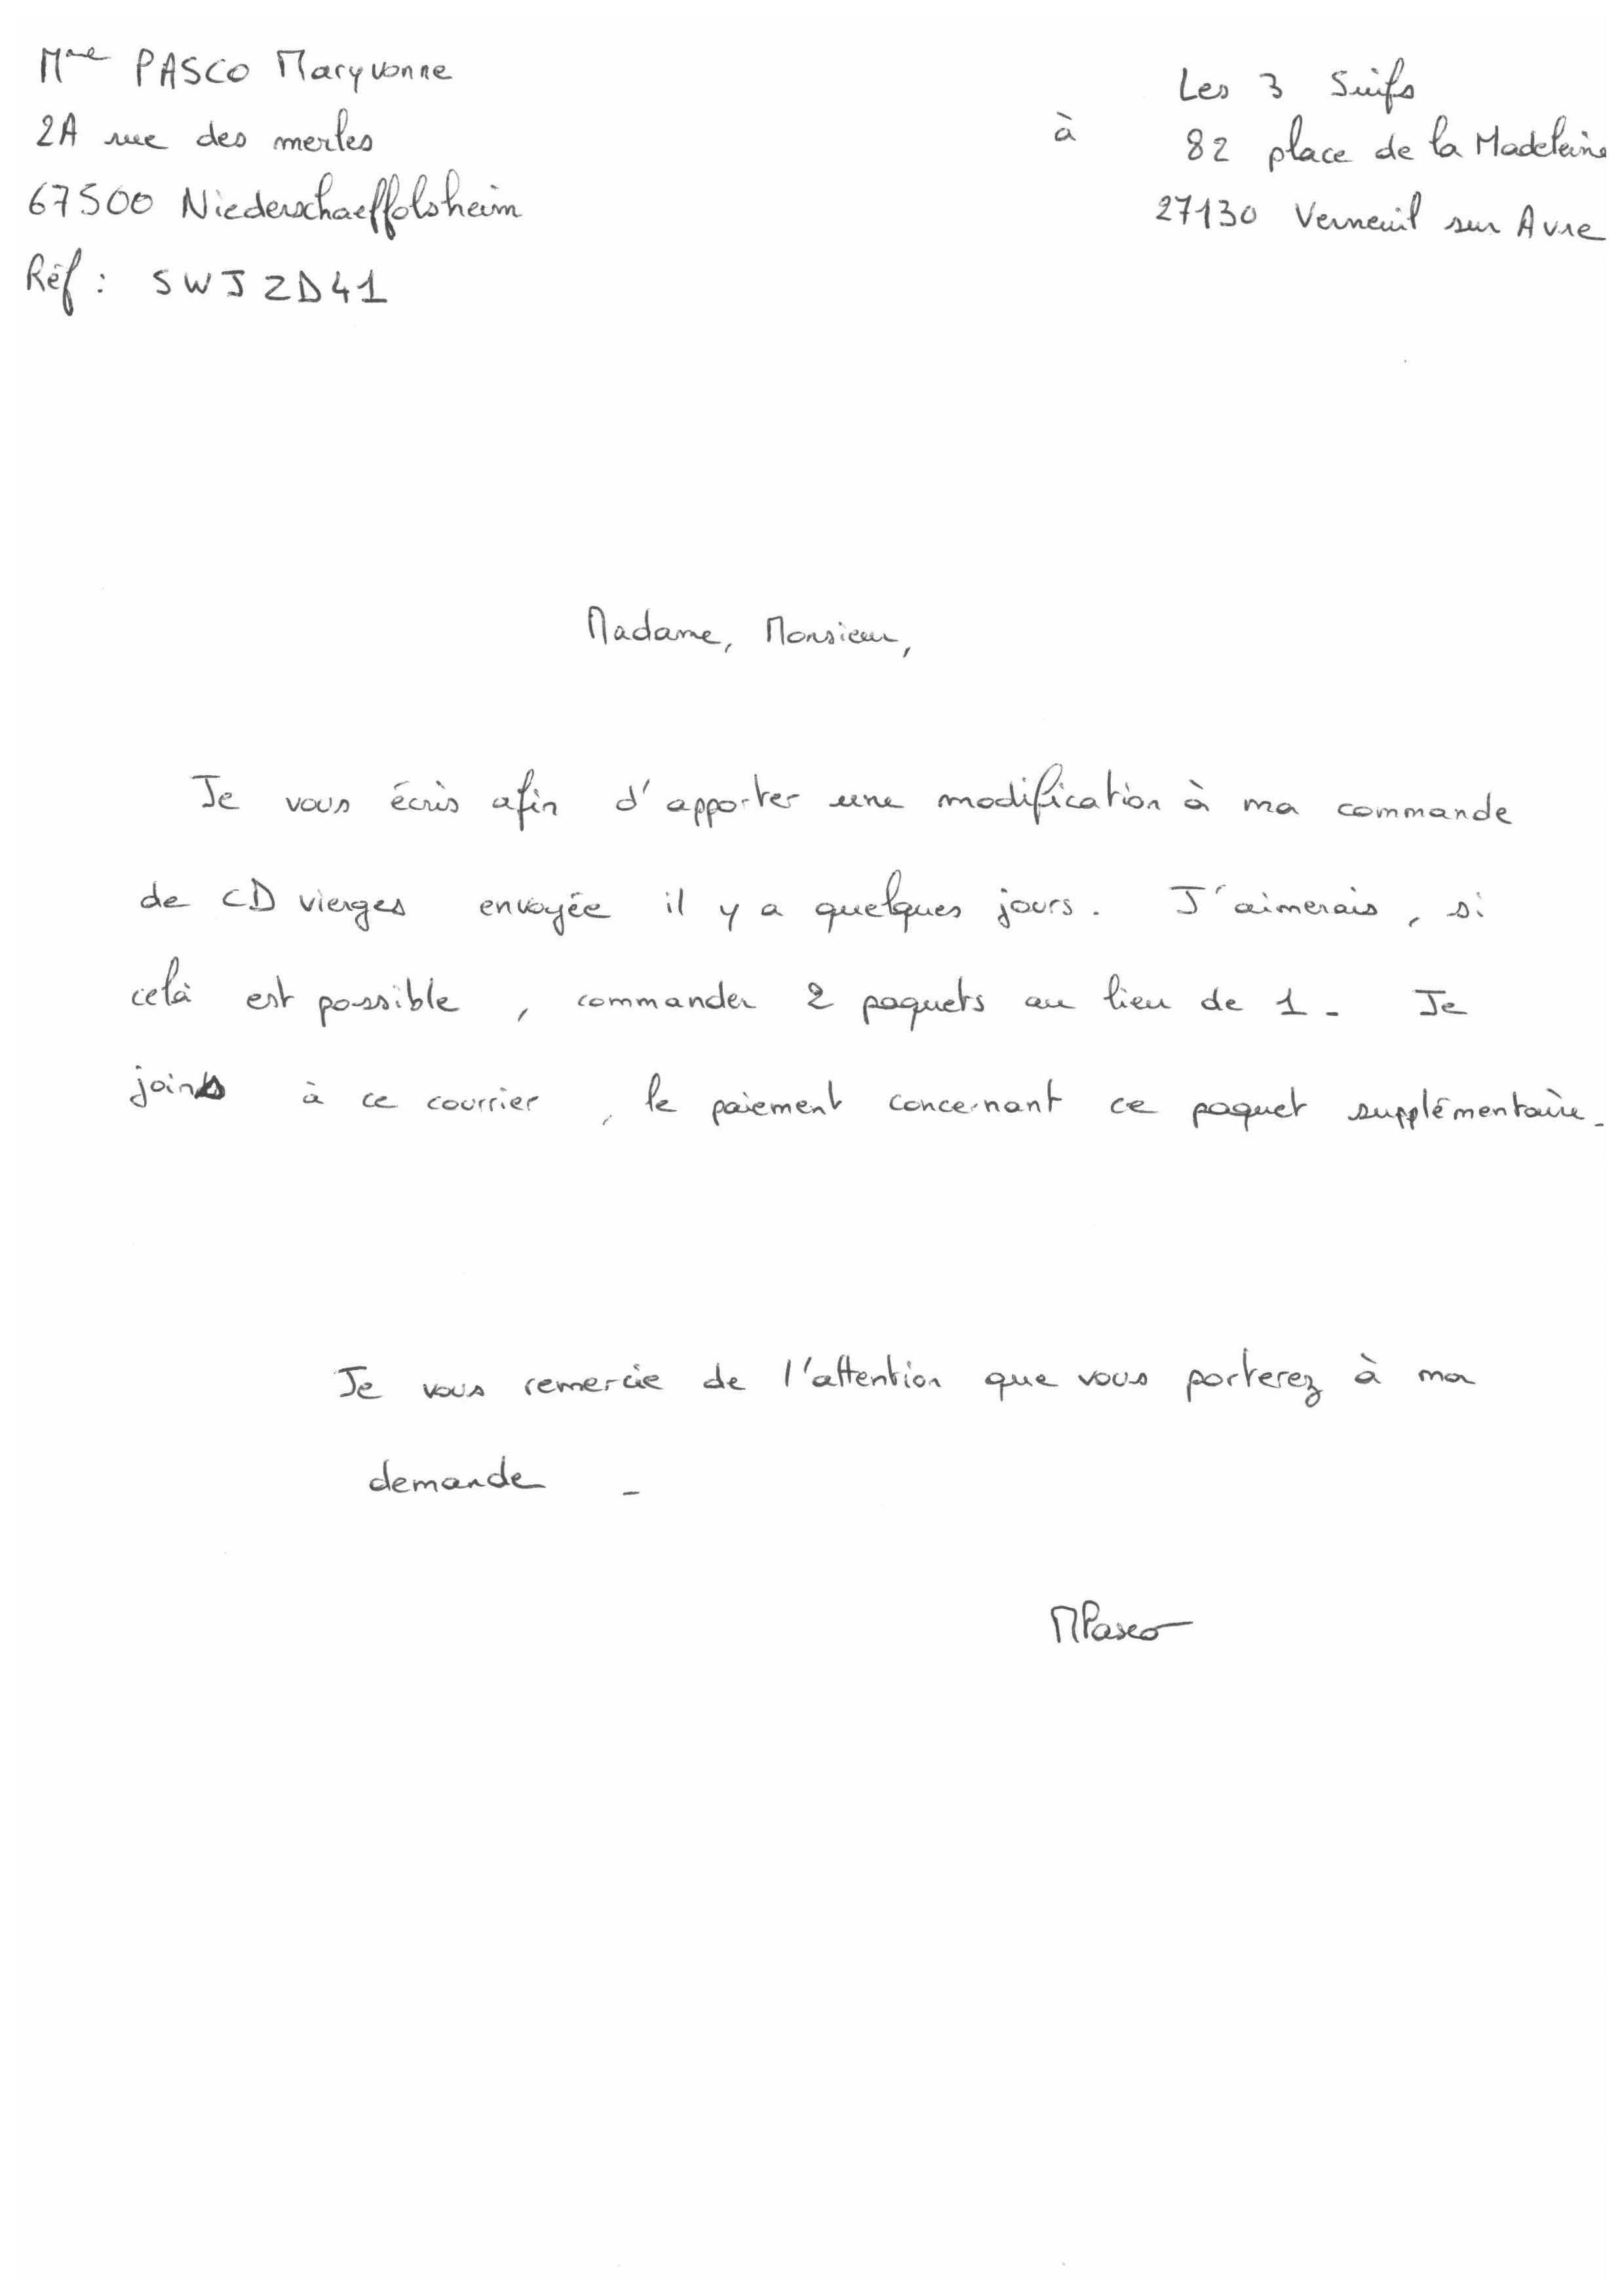 Mme PASCO Maryvonne
2A rue des merles
67500 Niederschaeffolsheim
Réf : SWJZD41
à
Les 3 Suifs
82 place de la Madeleine
27130 Verneuil sur Avre
Madame, Monsieur,
Je vous écris afin d'apporter une modification à ma commande
de CD vierges envoyée il y a quelques jours. J'aimerais, si
celà est possible, commander 2 paquets au lieu de 1. Je
joins à ce courrier, le paiement concernant ce paquet supplémentaire.
Je vous remercie de l'attention que vous porterez à ma
demande.
MPasco